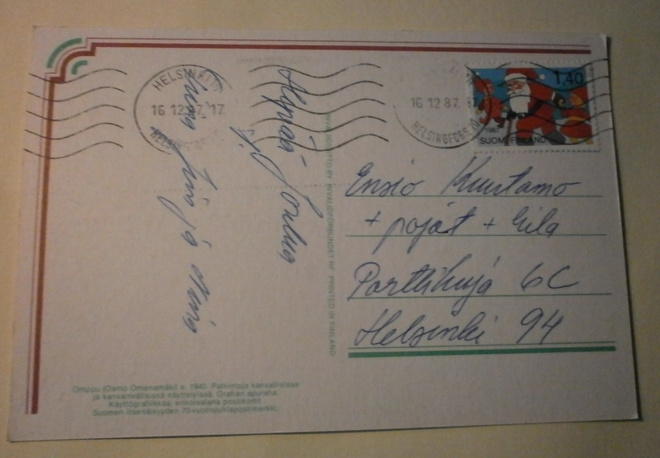 HELSINKI
16.12.87.17
HELSINGFORS
16 12 87. 17
HELSINGFORS
1,40
1987
SUOMI FINLAND
Hyvää Joulua
Ensio
+ pojat + Eila
Porttikuja 6C
Helsinki 94
PRINTED IN FINLAND
Omppu (Osmo Omenamäki) s. 1940. Palkintoja kansallisissa
ja kansainvälisissä näyttelyissä. Grafian apuraha.
Käyttögraafikkaa, erikoisalana postikortit.
Suomen itsenäisyyden 70-vuotisjuhlapostimerkki.